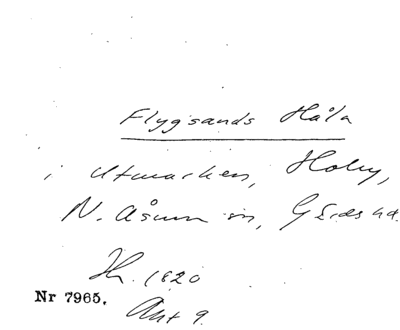 Flygsands Håla
i Utmarken, Hoby,
N. Åsum sn, Gärds hd.
Hr. 1820
Nr 7965.
Akt 9.